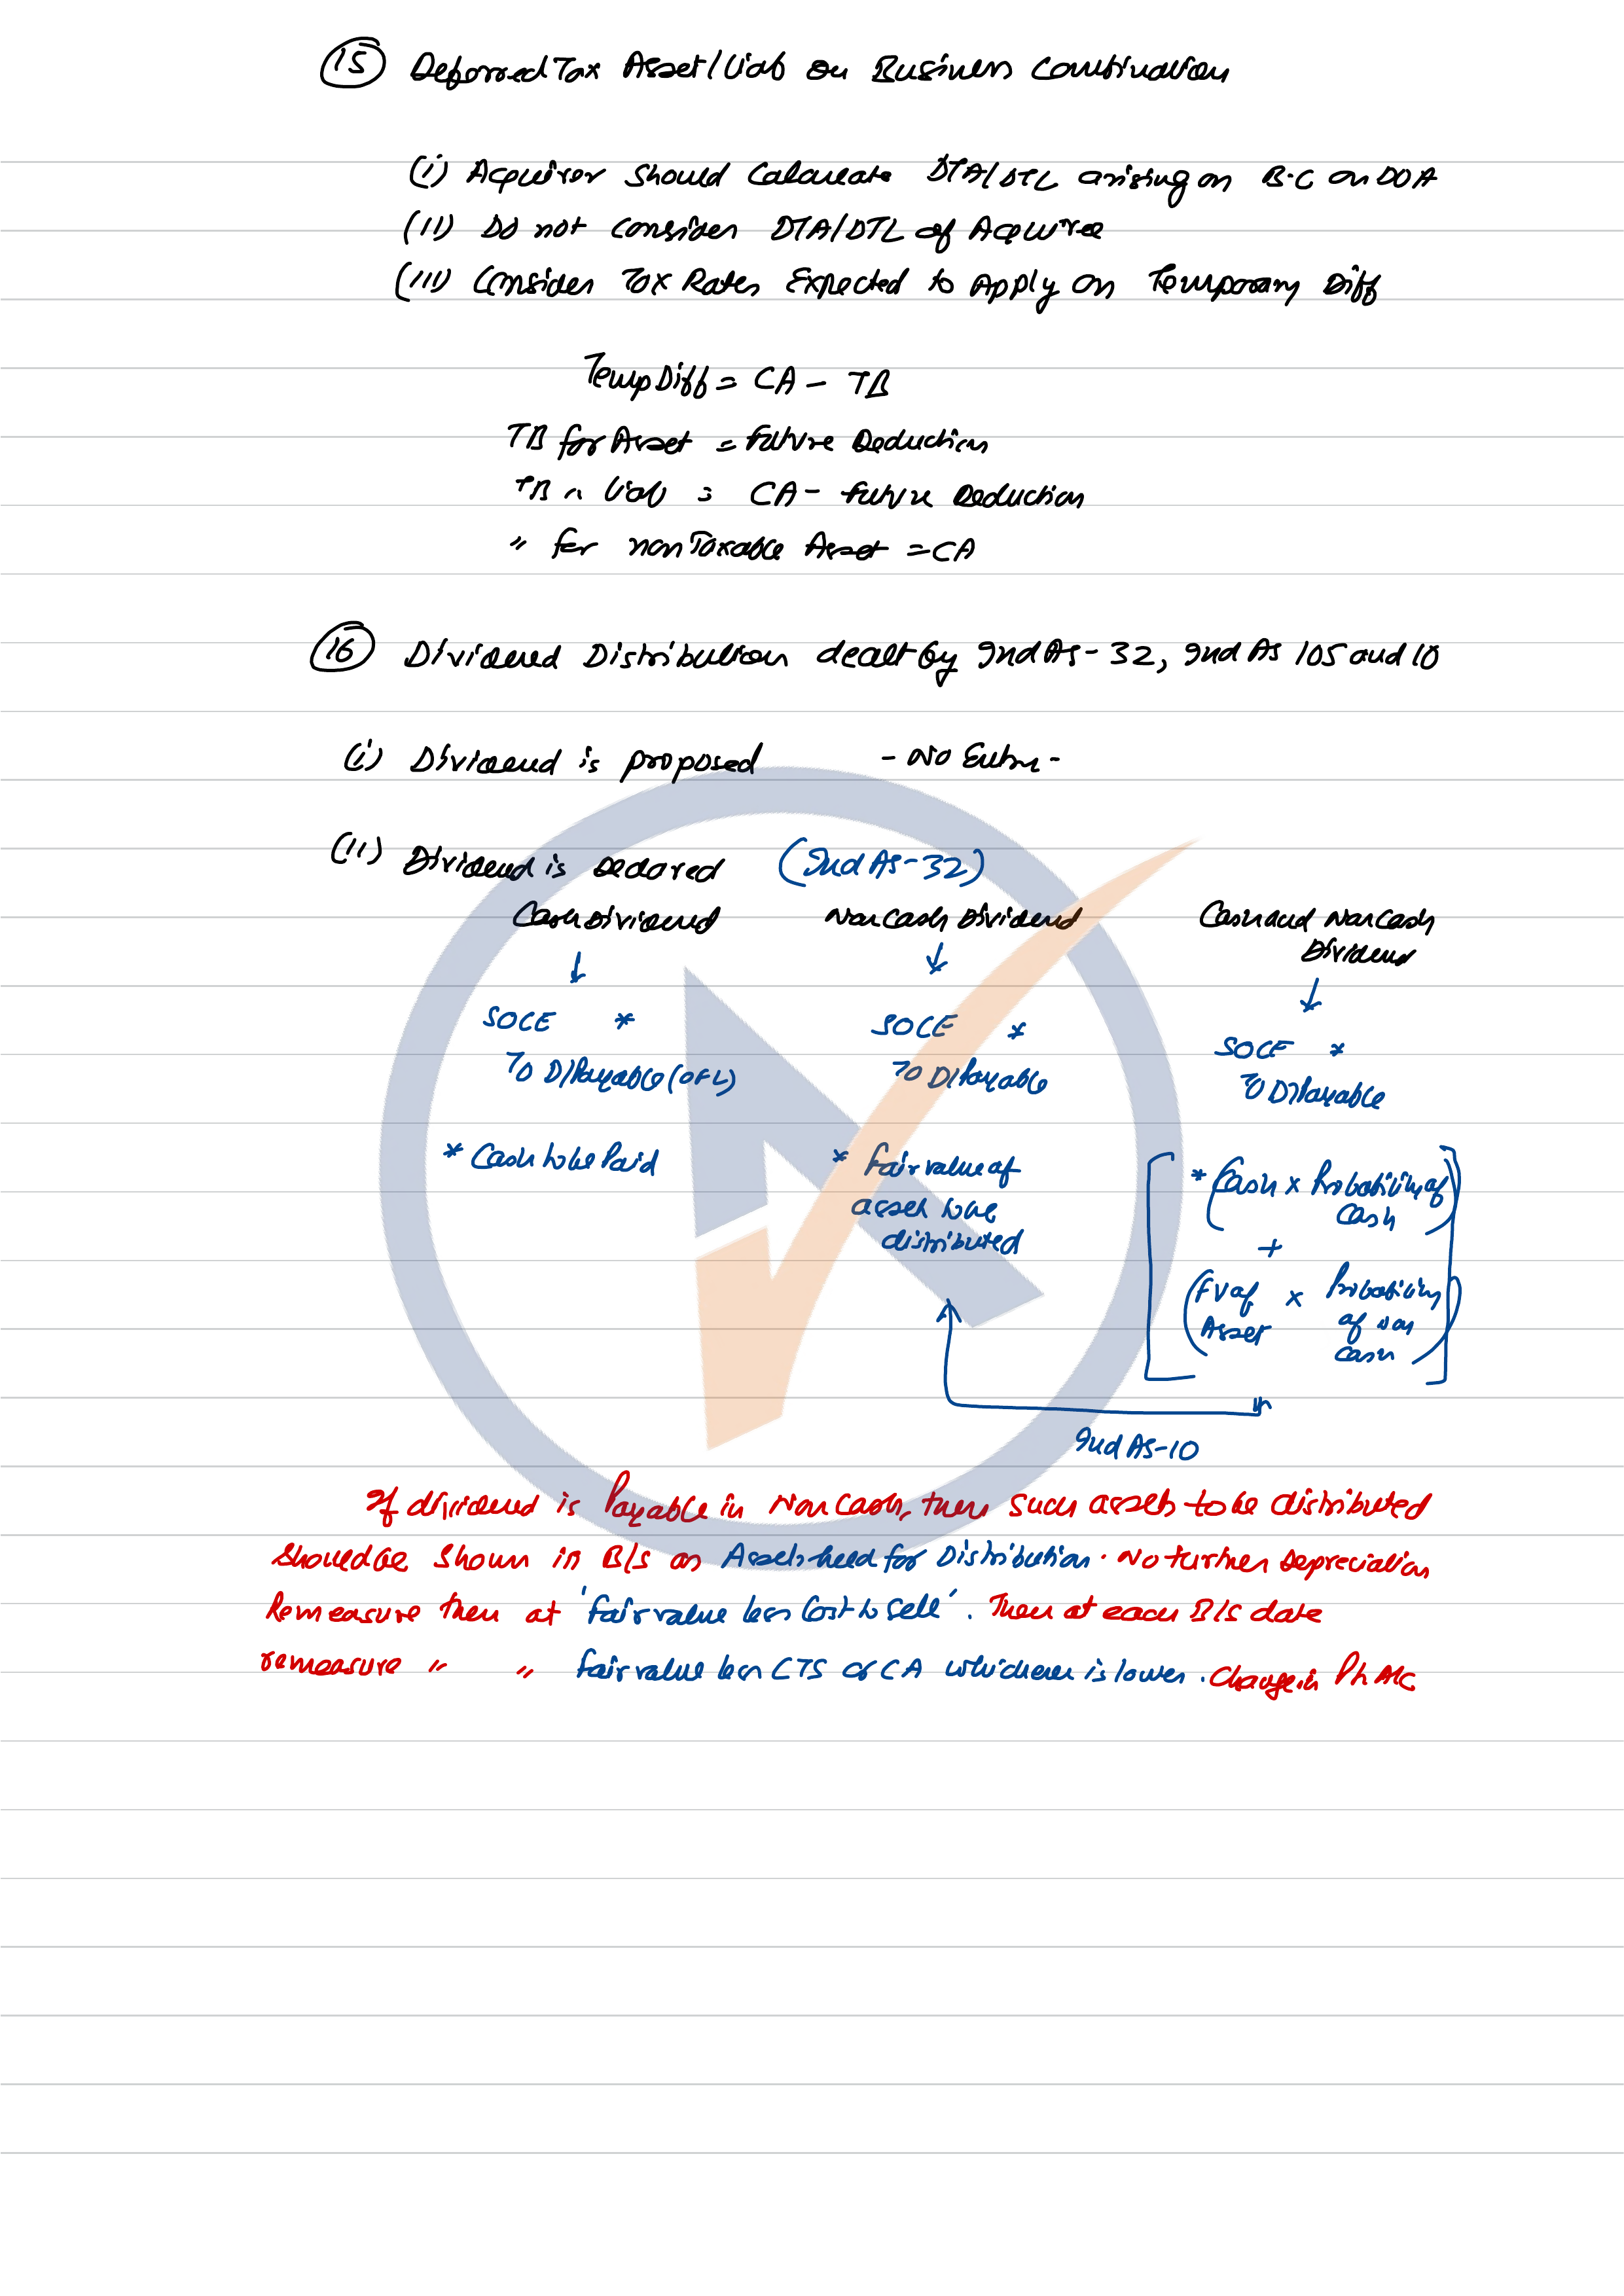 15 Deferred Tax Asset/Liab on Business Combination
(i) Acquirer should Calculate DTA/DTL arising on B.C on DOA
(ii) Do not consider DTA/DTL of Acquiree
(iii) Consider Tax Rates Expected to Apply on Temporary Diff
Temp Diff = CA - TB
TB for Asset = Future Deduction
TB " Liab = CA - Future Deduction
" for non Taxable Asset = CA
16 Dividend Distribution dealt by Ind AS-32, Ind AS 105 and 10
(i) Dividend is proposed - No Entry -
(ii) Dividend is Declared (Ind AS-32)
Cash Dividend Non Cash Dividend Cash and Non Cash
Dividend
SOCE * SOCE * SOCE *
To D/Payable (OFL) To D/Payable To D/Payable
* Cash to be Paid * Fair value of * (Cash x Probability of
asset to be Cash)
distributed +
(FV of x Probability
Asset of Non
Cash)
Ind AS-10
If dividend is Payable in Non Cash, then such assets to be distributed
should be shown in B/S as Assets held for Distribution. No further Depreciation
Remeasure them at 'fair value less Cost to Sell'. Then at each B/S date
remeasure " " fair value less CTS or CA whichever is lower. Change in P/L A/c